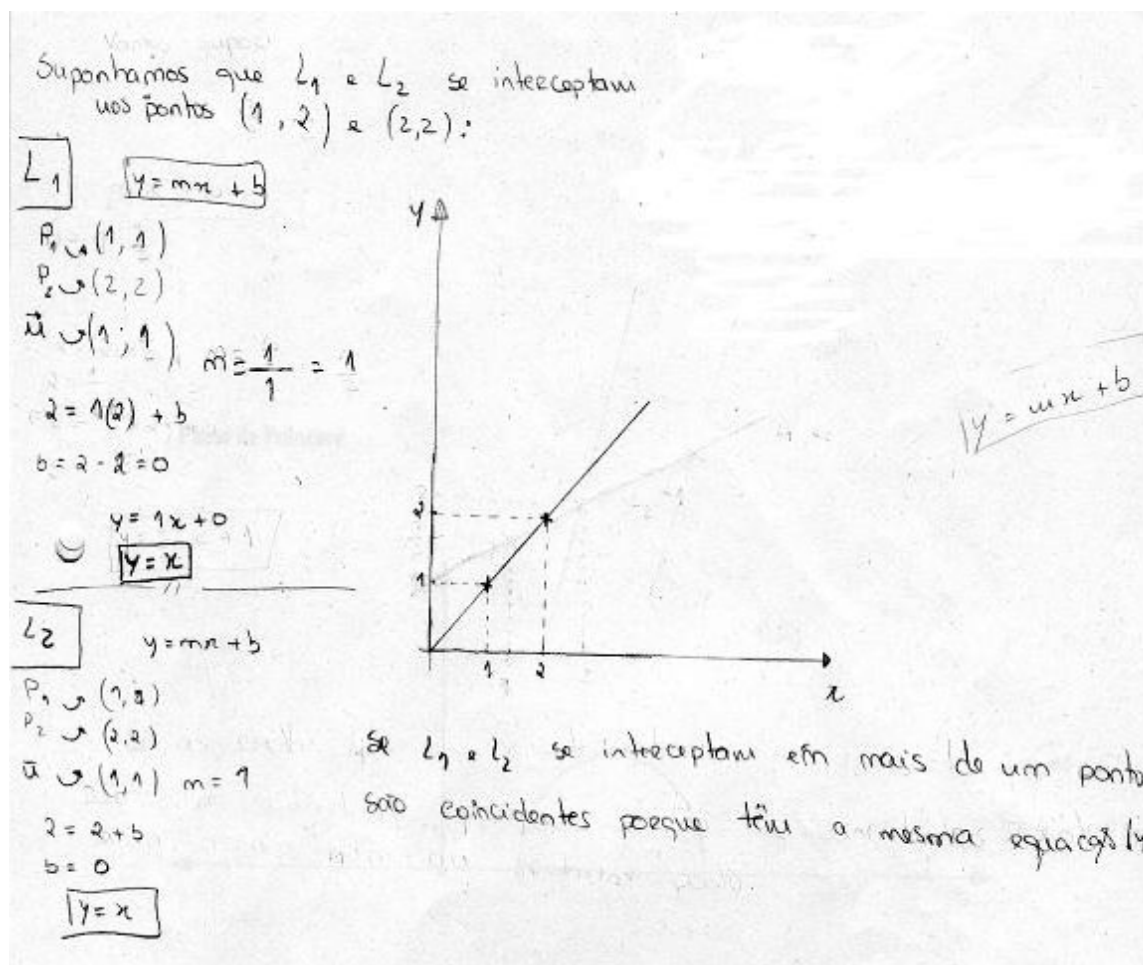 Suponhamos que L1 e L2 se interceptam
nos pontos (1, 2) e (2,2):
L1
y = mx + b
P1 (1, 1)
P2 (2, 2)
u (1, 1)
m = 1/1 = 1
2 = 1(2) + b
b = 2 - 2 = 0
y = 1x + 0
y = x
L2
y = mx + b
P1
P2 (2,2)
u (1,1) m = 1
2 = 2 + b
b = 0
y = x
y
2
1
1 2
x
y = mx + b
Se L1 e L2 se interceptam em mais de um ponto
são coincidentes porque têm a mesma equação